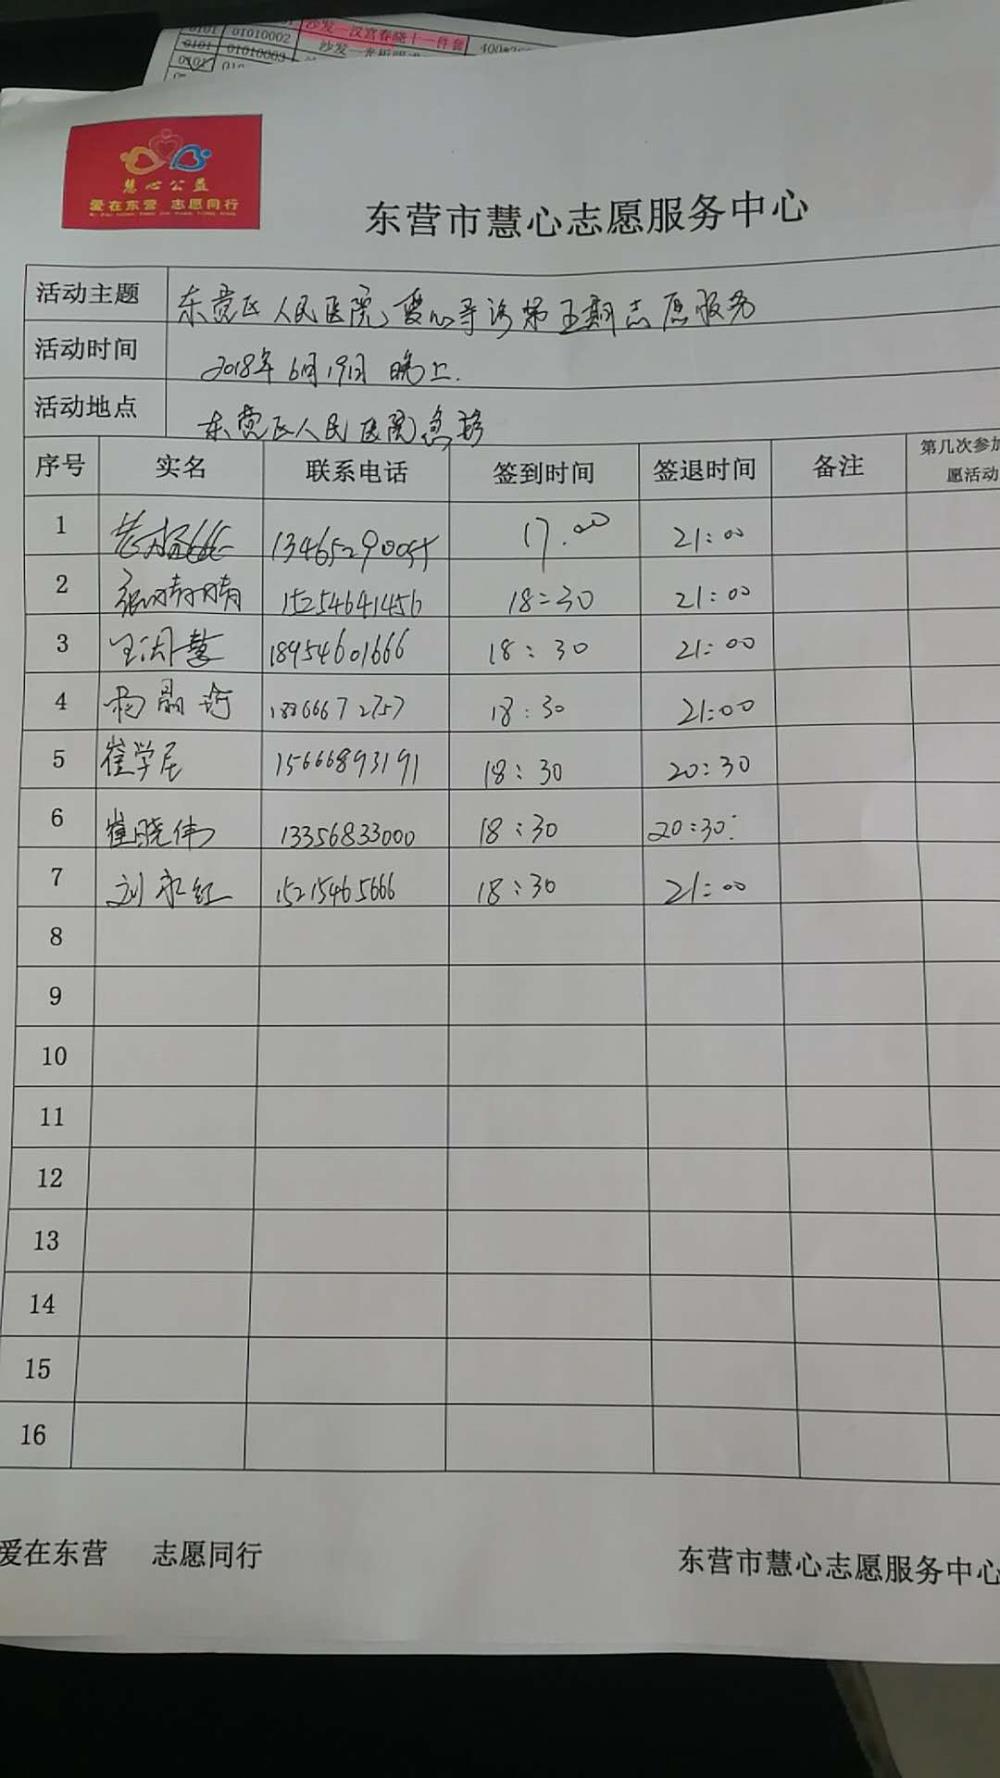 0101 01010002 沙发—汉宫春晓十一件套
0101 01010003
0101
慧心公益
爱在东营 志愿同行
东营市慧心志愿服务中心
活动主题 东营区人民医院爱心导诊第五期志愿服务
活动时间 2018年6月19日 晚上.
活动地点 东营区人民医院急诊
序号 实名 联系电话 签到时间 签退时间 备注 第几次参加
愿活动
1 17.00 21:00
2 张晴晴 15254641456 18:30 21:00
3 18954601666 18:30 21:00
4 杨晶 18:30 21:00
5 崔学尼 15666893191 18:30 20:30
6 崔晓伟 13356833000 18:30 20:30
7 刘永红 15215465666 18:30 21:00
8
9
10
11
12
13
14
15
16
爱在东营 志愿同行 东营市慧心志愿服务中心